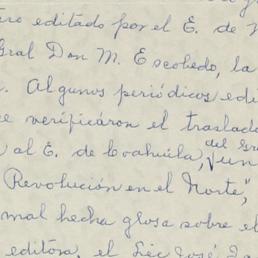 editado por el E. de
Gral Don M. Escobedo, la
Algunos periódicos edi
verificáron el traslado
al E. de Coahuila, del Gra
un
Revolución en el Norte",
mal hecha glosa sobre el
editora, el Lic José